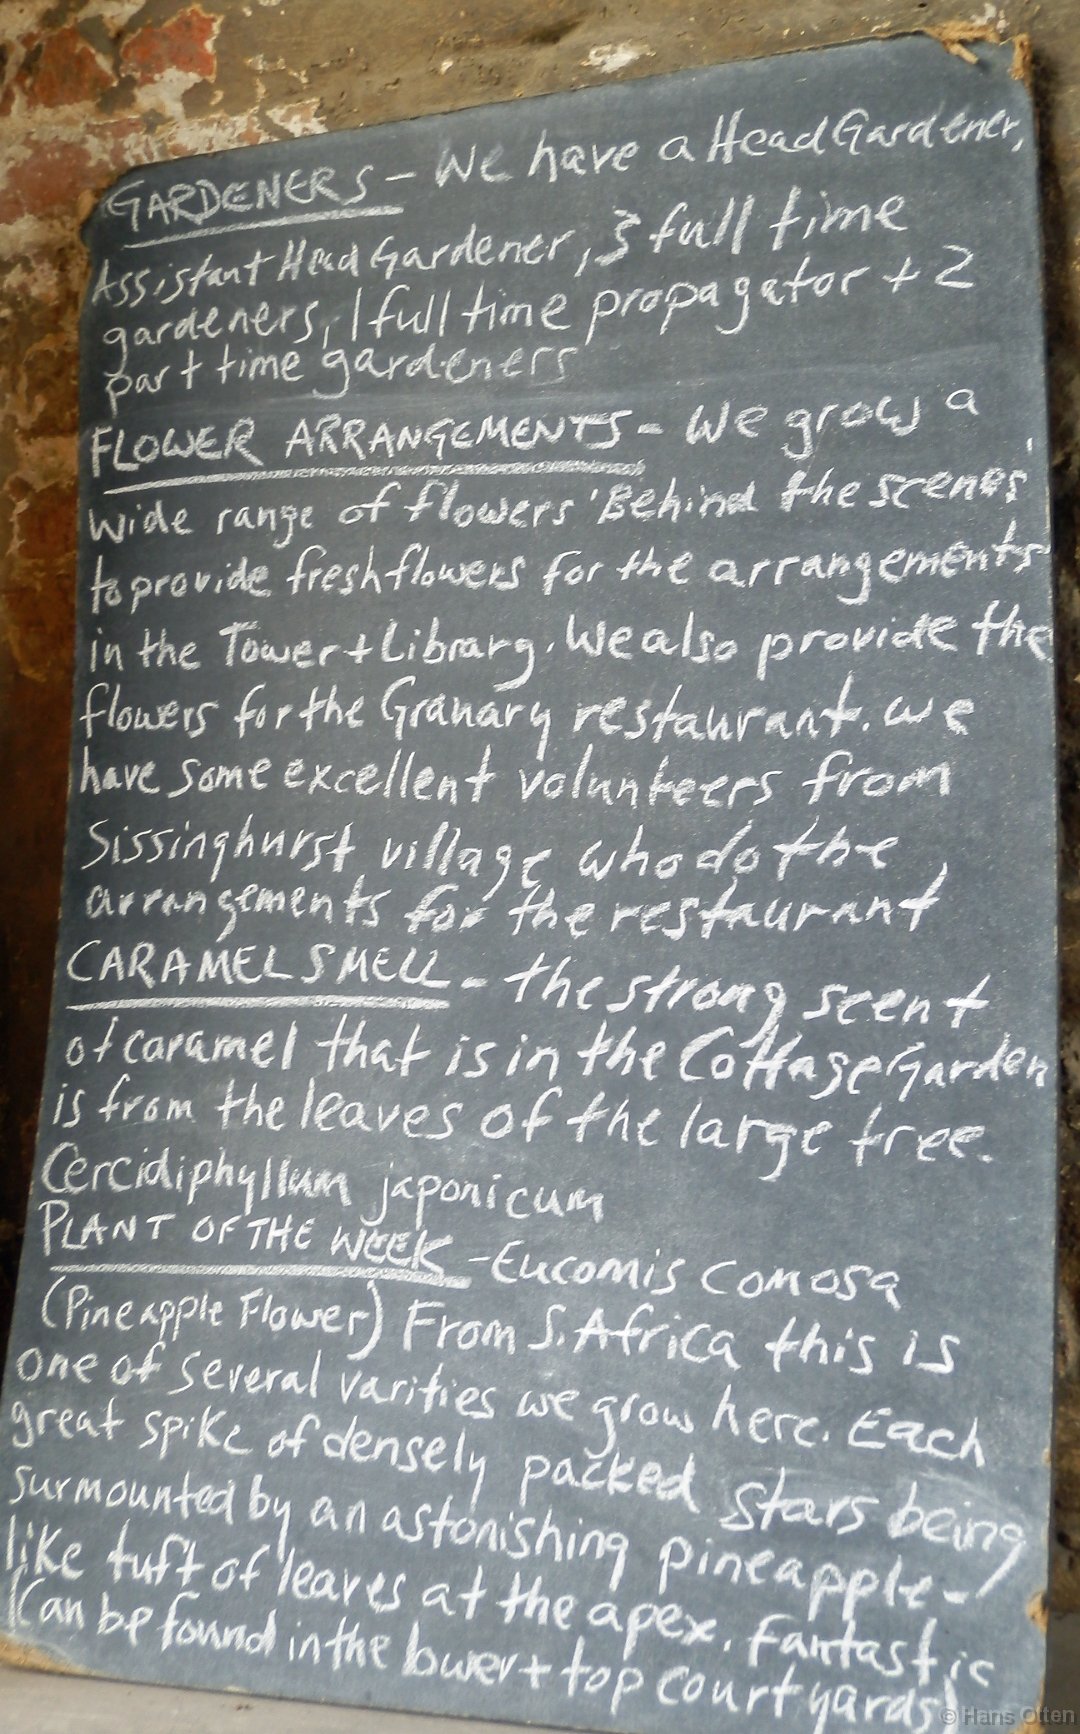 GARDENERS - We have a Head Gardener,
Assistant Head Gardener, 3 full time
gardeners, 1 full time propagator + 2
part time gardeners
FLOWER ARRANGEMENTS - We grow a
wide range of flowers 'Behind the scenes'
to provide fresh flowers for the arrangements
in the Tower + Library. We also provide the
flowers for the Granary restaurant. We
have some excellent volunteers from
Sissinghurst village who do the
arrangements for the restaurant
CARAMEL SMELL - the strong scent
of caramel that is in the Cottage Garden
is from the leaves of the large tree.
Cercidiphyllum japonicum
PLANT OF THE WEEK - Eucomis comosa
(Pineapple Flower) From S. Africa this is
one of several varities we grow here. Each
great spike of densely packed stars being
surmounted by an astonishing pineapple-
like tuft of leaves at the apex. Fantastic
Can be found in the lower + top courtyards!
© Hans Otten